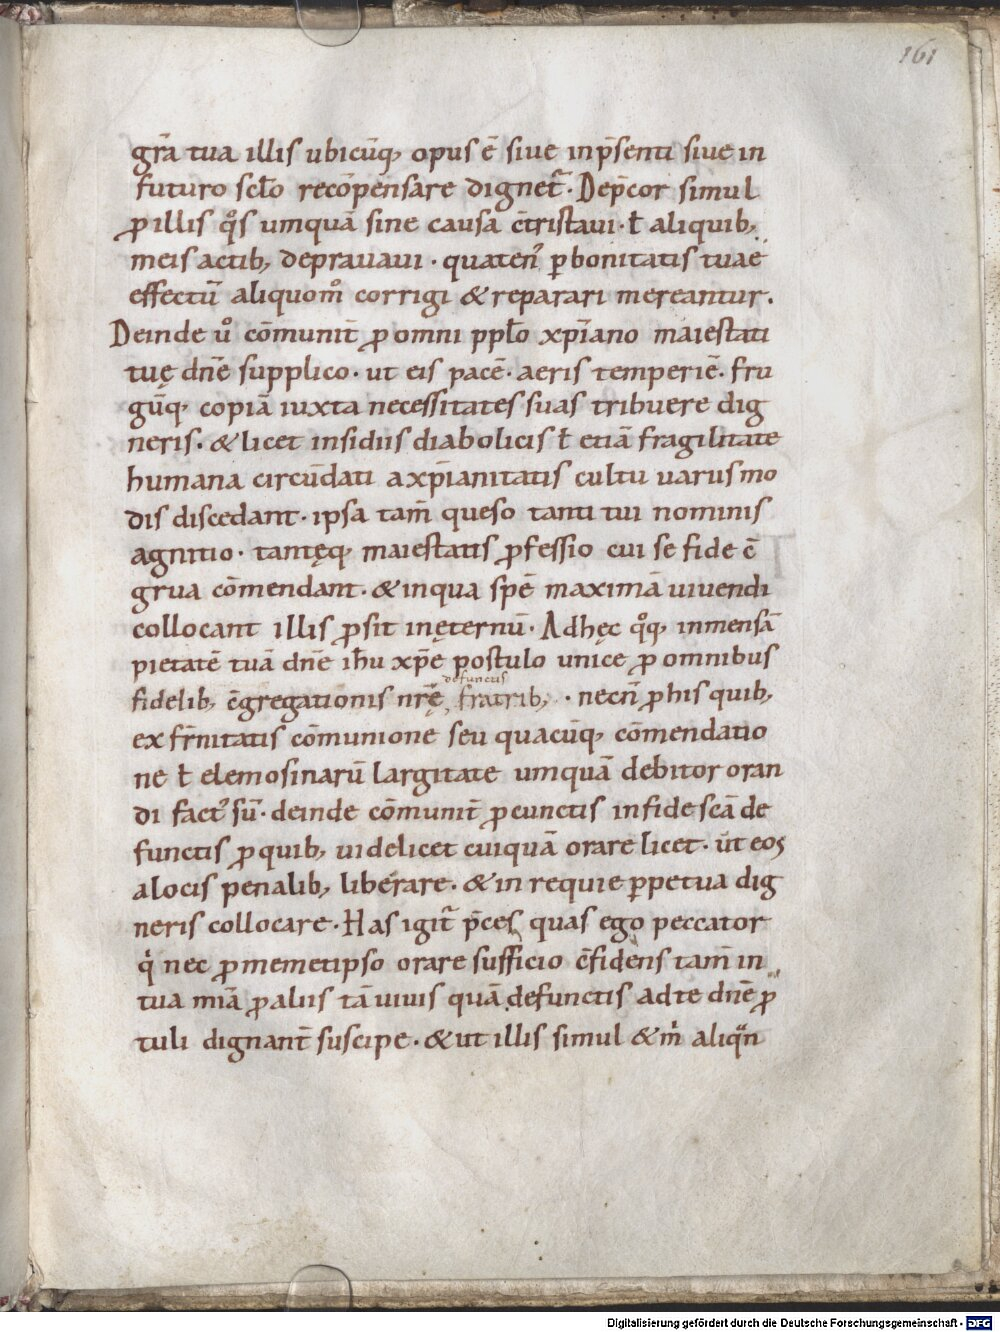 161
gr̄a tua illis ubicūq, opus ē sive inp̄senti sive in
futuro sc̄lo recōpensare dignet᷑. Dep̄cor simul
ꝓ illis qͦs umquā sine causa c̄tristavi · ł aliquib,
meis actib, depravavi · quaten᾽ ꝑ bonitatis tuae
effectū aliquom̊ corrigi & reparari mereantur.
Deinde ůo cōmunit̄ ꝓ omni ppl̄o xp̄iano maiestati
tuę dn̄e supplico · ut eis pacē · aeris temperiē · fru
gūq, copiā iuxta necessitates suas tribuere dig
neris · & licet insidiis diabolicis ł etiā fragilitate
humana circūdati a xp̄ianitatis cultu variis mo
dis discedant · ipsa tam̄ queso tanti tui nominis
agnitio · tantęq, maiestatis ꝓfessio cui se fide ē
grua cōmendant · & in qua spē maximā vivendi
collocant illis ꝓsit in ęternū · Adhęc qͦq, inmensā
pietatē tuā dn̄e ih̄u xp̄e postulo unice ꝓ omnibus
defunctis
fidelib, c̄gregationis nr̄ę, fratrib, · necn̄ ꝓ his quib,
ex fr̄nitatis cōmunione seu quacūq, cōmendatio
ne ł elemosinarū largitate umquā debitor oran
di fact᾽ sū · deinde cōmunit̄ ꝓ cunctis in fide sc̄a de
functis ꝓ quib, videlicet cuiquā orare licet · ut eos
a locis penalib, liberare · & in requie ꝑpetua dig
neris collocare · Has igit᷑ p̄ces quas ego peccator
qͥ nec ꝓ memetipso orare sufficio c̄fidens tam̄ in
tua mīa ꝓ aliis tā vivis quā defunctis ad te dn̄e ꝓ
tuli dignant̄ suscipe · & ut illis simul & mͥ aliqͣn
Digitalisierung gefördert durch die Deutsche Forschungsgemeinschaft - DFG